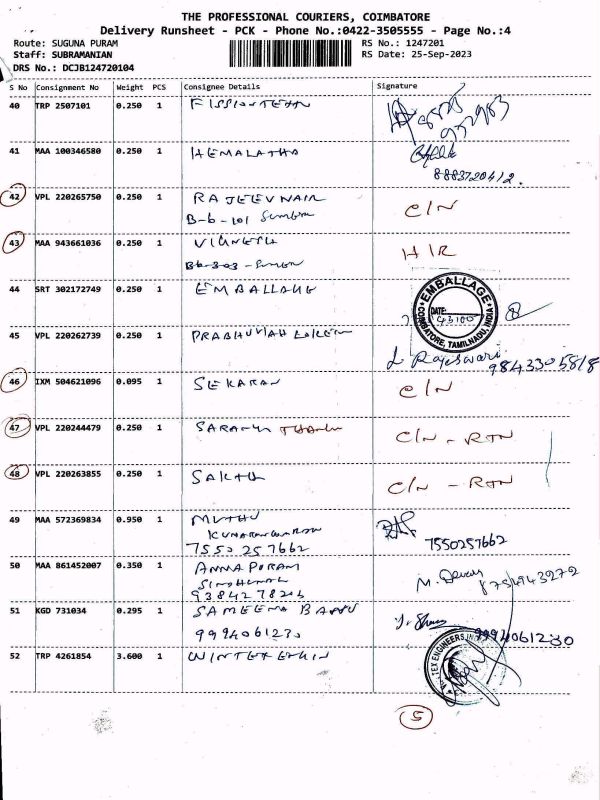 THE PROFESSIONAL COURIERS, COIMBATORE
Delivery Runsheet - PCK - Phone No.:0422-3505555 - Page No.:4
Route: SUGUNA PURAM
RS No.: 1247201
Staff: SUBRAMANIAN
RS Date: 25-Sep-2023
DRS No.: DCJB124720104
S No Consignment No Weight PCS Consignee Details Signature
40 TRP 2507101 0.250 1
41 MAA 100346580 0.250 1 HEMALATHA
8883720412.
42 VPL 220265750 0.250 1 RAJEEV NAIR C/N
B-6-101
43 MAA 943661036 0.250 1 VIGNESH H/R
B6-303-
44 SRT 302172749 0.250 1 EMBALLAGE
EMBALLAGE
DATE:
COIMBATORE, TAMILNADU, INDIA
45 VPL 220262739 0.250 1
L Rajeswari 9843305818
46 IXM 504621096 0.095 1 SEKARAN C/N
47 VPL 220244479 0.250 1 C/N - RTN
48 VPL 220263855 0.250 1 C/N - RTN
49 MAA 572369834 0.950 1 MUTHU
7550257662 7550257662
50 MAA 861452007 0.350 1 ANNAPURANI
M. 8754943272
51 KGD 731034 0.295 1 SAMEENA BANU
9994061230 9994061230
52 TRP 4261854 3.600 1
5